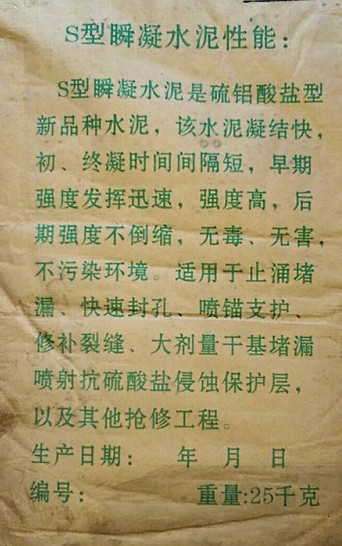 S型瞬凝水泥性能：
S型瞬凝水泥是硫铝酸盐型
新品种水泥，该水泥凝结快，
初、终凝时间间隔短，早期
强度发挥迅速，强度高，后
期强度不倒缩，无毒、无害，
不污染环境。适用于止涌堵
漏、快速封孔、喷锚支护、
修补裂缝、大剂量干基堵漏
喷射抗硫酸盐侵蚀保护层，
以及其他抢修工程。
生产日期： 年 月 日
编号： 重量:25千克